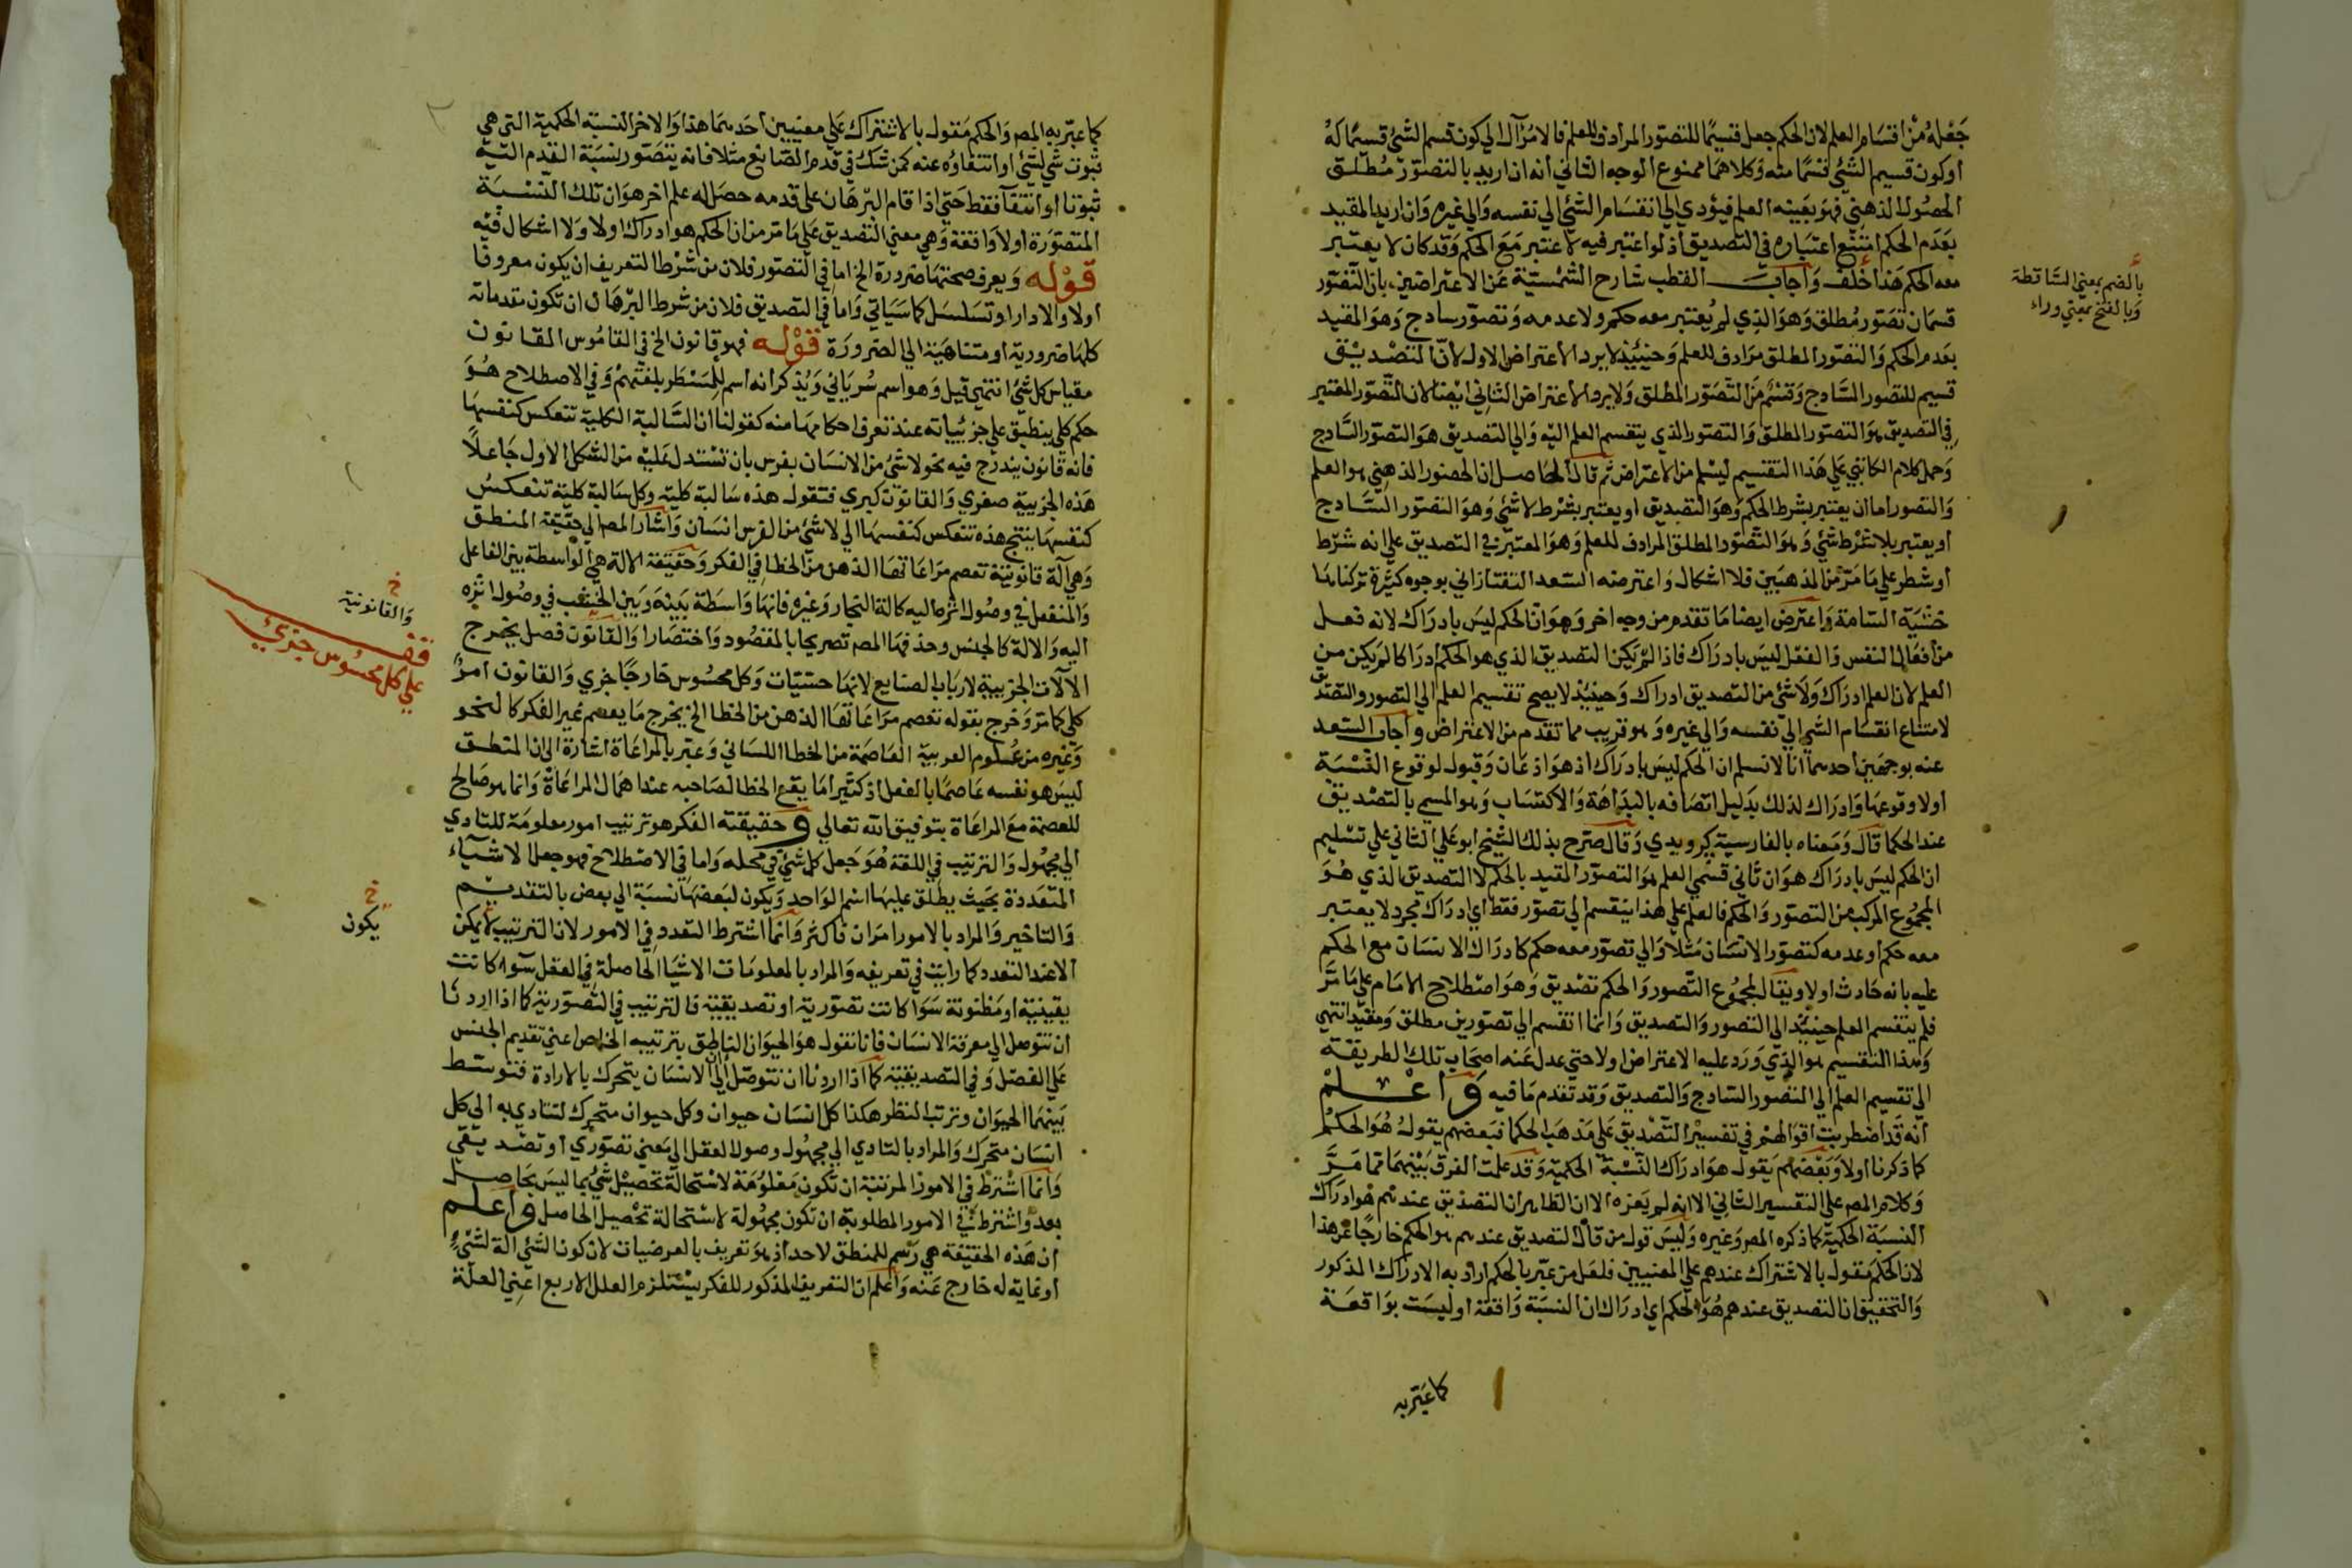 جَعْلهُ مِنْ اقسَام العلم لان الحكم جعل قسيمًا للتصوّر المرادف للعلم فالامرُ آل الي كون قسم الشئ قسيمًا لهُ
او كون قسيم الشئ قسمًا منه وَكلاهمَا ممنوع الوجه الثاني أنه ان اريد بالتصوّر مُطلق
الحصُول الذهني فهوَ بعَينه العلم فيؤدي الي انقسَام الشئ الي نفسه وَالي غيره وَان اريد المقيد
بعَدَم الحكم امتنع اعتبَاره في التصديق اذ لو اعتبر فيه لاعتبر مَعَ الحكم وَقد كان لا يعتبر
معه الحكم هَذا خلف وَاجابَ القطب شارح الشمسيّة عَن الاعتراضين بان التّصَور
قسمَان تصَور مُطلق وَهوَ الذي لم يُعتبر معه حكم ولا عدمه وَتصوّر سادج وَهوَ المقيد
بعَدم الحكم وَالتصوّر المطلق مرَادف للعلم وَحينئذ لا يرد الاعتراض الاول لانّ التصْديْق
قسيم للتصور السَّادج وَقسْمٌ مِنَ التّصَوّر المطلق وَلا يرد الاعتراض الثاني ايضا لان التّصَوّر المعتبر
في التصديق هوَ التصوّر المطلق وَالتصوّر الذي ينقسم العلم اليْه وَالي التصديق هوَ التصوّر السَّادج
وَحمل كلام الكاتبي عَلي هَذا التقسيم ليسْلم من الاعتراض ثم قال الحَاصل ان الحضور الذهني هو العلم
وَالتصور اما ان يعتبر بشرط الحكم وَهوَ التصديق او يعتبر بشرْط لا شئ وَهوَ التصوّر السَّادج
او يعتبر بلا شرْط شئ وَهوَ التّصَوّر المطلق المرادف للعلم وَهوَ المعتبَر في التصديق علي انه شرْط
او شطر علي مَا مَرّ مِن المذهبَين فلا اشكال وَاعترضه السّعد التفتازاني بوجوه كثيرَة تركناهَا
خَشيَة السّامة وَاعترض ايضا مَا تقدم من وجه اخر وَهوَ انّ الحكم ليسَ بادرَاك لانه فعل
من أفعَال النفس وَالفعْل ليسَ بادرَاك فاذا لم يَكن التصديق الذي هو الحكم ادرَاكا لم يَكن من
العلم لان العلم ادرَاك وَلا شئ من التصديق ادراك وَحينئذ لا يصح تقسيم العلم الي التصور والتصَديق
لامتناع انقسَام الشئ الي نفسه وَالي غيره وَهو قريب مما تقدم من الاعتراض وأجابَ السّعد
عنه بوجهَين أحدهمَا أنا لا نسلم ان الحكم ليسَ بادرَاك اذ هوَ اذعَان وَقبول لوقوع النّسْبَة
اولا وقوعهَا وَادرَاك لذلك بدَليل اتصَافه بالبدَاهَة وَالاكتسَاب وَهو المسمي بالتصْديق
عند الحكما قالَ وَمعناه بالفارسية كرويدي وَقال صَرّح بذلك الشيخ ابو عَلي الثاني علي تسْليم
ان الحكم ليسَ بادرَاك هوَ ان ثاني قسْمي العلم هوَ التصوّر المقيد بالحكم لا التصديق الذي هُوَ
المجمُوع المركب من التصوّر وَالحكم فالعلم علي هذا ينقسم الي تصوّر فقط اي ادرَاك مجرد لا يعتبر
معه حكم او عدمه كتصوّر الانسَان مَثلاً وَالي تصوّر معه حكم كادرَاك الانسَان مع الحكم
عليه بانه حَادث اولا ويقال لمجمُوع التّصور وَالحكم تصْديق وَهوَ اصْطلاح الامَام علي مَا مَرَّ
فلم ينقسم العلم حينئذ الي التصور وَالتصديق وَانما انقسم الي تصوّرين مطلق وَمقيّد انتهي
وَهذا التقسيم هو الذي وَرَد عليه الاعتراض اولا حتي عدل عَنه اصحَاب تلك الطريقَة
الي تقسيم العلم الي التصُور السّادج وَالتصديق وَقد تقدم مَا فيه وَاعْلمْ
أنه قَد اضطربت اقوَالهمْ في تفسيْر التّصْديق عَلي مَذهَب الحكما فبَعضهم يقولُ هُوَ الحكمُ
كما ذكرنا اولا وَبَعْضهم يَقول هوَ ادرَاك النّسْبة الحكمية وَقد علمت الفرق بَيْنهمَا مما مَرَّ
وَكلام المص علي التفسير الثاني الا انه لم يَعزه الا ان الظاهر ان التصديق عندهم هوَ ادرَاك
النسبَة الحكمية كما ذكره المص وَغيره وَليسَ قول من قال التصديق عندهم هو الحكم خارجًا عَن هذا
لان الحكم مَقول بالاشتراك عندهم علي المعنيين فلعَل من عبّر بالحكم اراد به الادراك المذكور
وَالتحقيق ان التصديق عندهم هُوَ الحكم اي ادرَاك ان النسبَة وَاقعَة او ليسَت بوَاقعَة
كما عَبّر به
بالضم بمعني السَّاقطة
وَبالفتح بمعني وراء
كما عبّر به المص وَالحكم مَقول بالاشتراك عَلي معنيين أحَدهمَا هذا وَالاخر النسبَة الحكمية التي هي
ثبوت شي لشئ او انتفاؤه عنه كمن شكّ في قدم الصّانع مثلا فانه يتصَوّر نسْبَة القدم اليْه
ثبوتا او انتفآ فقط حَتي اذا قام البرْهَان علي قدمه حصَل له علم اخر هوَ ان تلك النّسْبَة
المتصوّرَة اولا وَاقعَة وَهي معني التصديق علي مَا مَر من ان الحكم هو ادرَاك اولا وَلا اشكال فيْه
قوْله وَيعرف صحتهَا ضرورة الخ اما في التصوّر فلان من شرْط التعريف ان يكون معروفا
اولا والا دار او تسَلسَل كما سَيَاتي وَاما في التصديق فلان من شرط البرْهَان ان تكون مقدماته
كلهَا ضرورية او متناهيَة الي الضرورَة قوْله فهو قانون الخ في القامُوس القانون
مقياس كل شئ انتهي قيل وَهو اسم سُريَاني وَيُذكر انه اسم للمسْطَر بلغتهمْ وَفي الاصطلاح هُوَ
حكم كلي ينطبق علي جزئيياته عند تعرف احكامهَا منه كقولنا ان السَّالبة الكلية تنعكس كنفسهَا
فانه قانون يندرج فيه نحو لا شئ من الانسَان بفرس بان تسْتدل عَليْه من الشكل الاول جَاعلاً
هَذه الجزيية صغري وَالقانون كبري فتقول هذه سَالبة كلية وكل سَالبة كلية تنعكسُ
كنفسهَا ينتج هذه تنعكس كنفسهَا الي لا شئ من الفرس انسَان وَاشار المص الي حقيقة المنطق
وَهي آلة قانونية تعصم مرَاعَاتهَا الذهن من الخطا في الفكر وَحقيقة الالة هي الوَاسطة بين الفاعل
وَالمنفعل في وصُول اثره اليه كالة النجار وَغيره فانهَا وَاسَطَة بَينَه وَبَين الخشب في وصُول اثره
اليه وَالالة كالجنس وحذفها المص تصريحا بالمقصُود وَاختصَارا وَالقانون فصل يخرج
الآلآت الجزيية لارباب الصنايع لانهَا حسّيّات وَكل محسُوس خارجًا جزي وَالقانون امرٌ
كلي كما مَر وَخرج بقوله تعصم مرَاعَاتهَا الذهن من الخطا الخ يخرج مَا يعصم غير الفكر كالنحو
وَغيره من عُلوم العربية العَاصمَة من الخطا اللسَاني وَعبّر بالمراعَاة اشارة الي ان المنطق
ليسَ هو نفسه عَاصمًا بالفعل اذ كثيرا مَا يقع الخطا لصَاحبه عند اهمال المراعَاة وَانما هو صَالح
للعصمة مَع المراعَاة بتوفيق الله تعالي وَحقيقته الفكر هو ترتيب امور معلومَة للتادي
الي مجهُول وَالترتيب في اللغة هُوَ جَعل كل شئ في محله وَاما في الاصْطلاح فهو جعل الاشيَآء
المتعَددَة بحَيث يطلق عليهَا اسْم الوَاحد وَيكون لبَعضهَا نسبَة الي بعض بالتقديم
وَالتاخير وَالمراد بالامور امرَان فاكثر وَانما اشترط التعدد في الامور لان الترتيب لا يمكن
الا عند التعدد كما رايت في تعريفه وَالمراد بالمعلومَات الاشيَا الحَاصلة في العقل سَوَا كانت
يقينية او مَظنونة سَوَا كانت تصوّرية او تصديقية فالترتيب في التّصَوّرية كما اذا اردنا
ان نتوصل الي معرفة الانسَان فانا نقول هوَ الحيوَان الناطق بترتيبه الخاص اعني تقديم الجنس
عَلي الفصْل وَفي التصديقية كما اذا اردنا ان نتوصّل الي ان الانسَان يتحرك بالارادة فنوسّط
بَينهمَا الحيوَان ونرتب النظر هكذا كل انسَان حيوان وكل حيوان متحرك لتنادي به الي كل
انسَان متحرك وَالمراد بالتادي الي مجهُول وصول العقل الي مَعني تصوّري او تصْديقي
وَانما اشترط في الامور المرتبة ان تكون مَعْلومَة لاسْتحالة تحصيْل شئ بما ليسَ بحَاصل
بعد وَاشترط في الامور المطلوبة ان تكون مجهُولة لاسْتحالة تحْصيل الحَاصل وَاعلم
أن هَذه الحقيقة هي رسْم للمنطق لا حد اذ هوَ تعريف بالعرضيات لان كون الشئ الة لشئ
او غاية له خارج عَنه وَاعلم ان التعريف المذكور للفكر يسْتلزم العلل الاربع اعني العلة
خ
وَالقانونية
فقف
علي كل محسُوس جزيٌ
خ
يكون